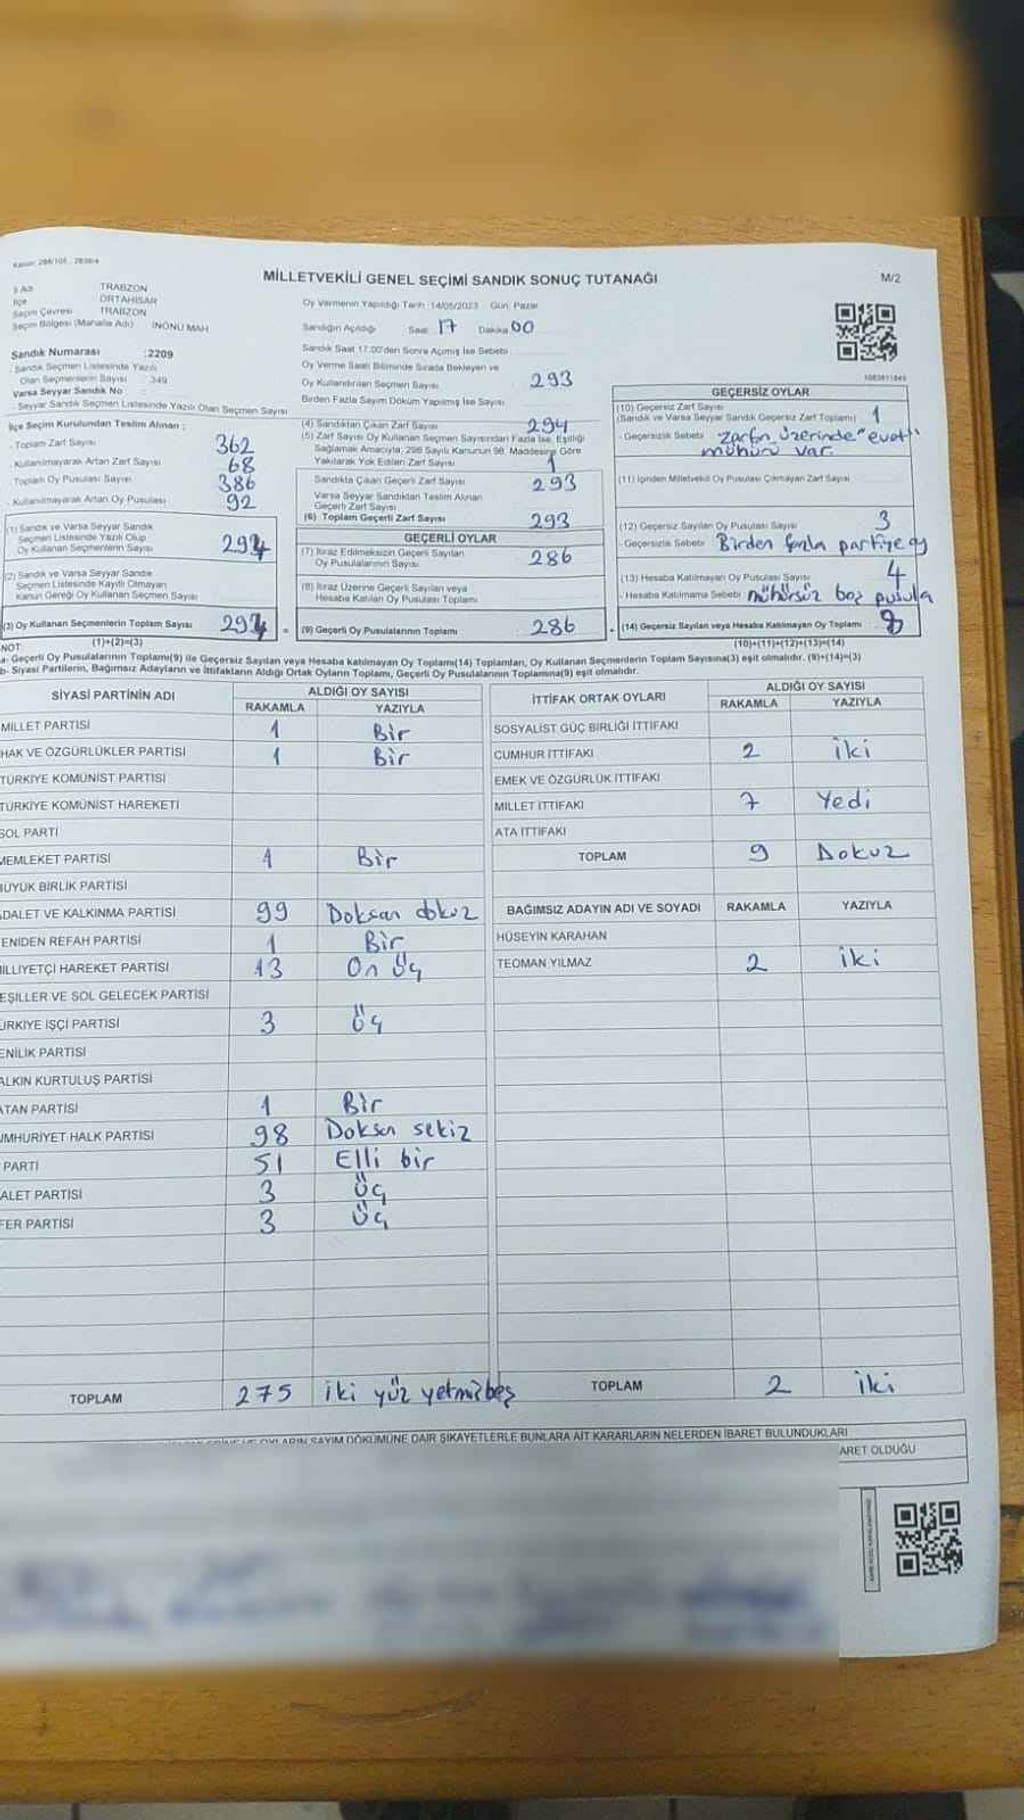 MİLLETVEKİLİ GENEL SEÇİMİ SANDIK SONUÇ TUTANAĞI
M/2
İl Adı TRABZON
İlçe ORTAHİSAR
Seçim Çevresi TRABZON
Seçim Bölgesi (Mahalle Adı) İNÖNÜ MAH
Oy Vermenin Yapıldığı Tarih :14/05/2023 Gün: Pazar
Sandığın Açıldığı Saat 17 Dakika 00
Sandık Saat 17:00'den Sonra Açılmış İse Sebebi
Sandık Numarası :2209
Sandık Seçmen Listesinde Yazılı
Olan Seçmenlerin Sayısı 349
Varsa Seyyar Sandık No :
Seyyar Sandık Seçmen Listesinde Yazılı Olan Seçmen Sayısı
Oy Verme Saati Bitiminde Sırada Bekleyen ve
Oy Kullandırılan Seçmen Sayısı 293
Birden Fazla Sayım Döküm Yapılmış İse Sayısı
İlçe Seçim Kurulundan Teslim Alınan ;
- Toplam Zarf Sayısı 362
- Kullanılmayarak Artan Zarf Sayısı 68
- Toplam Oy Pusulası Sayısı 386
- Kullanılmayarak Artan Oy Pusulası 92
(1) Sandık ve Varsa Seyyar Sandık
Seçmen Listesinde Yazılı Olup
Oy Kullanan Seçmenlerin Sayısı 294
(2) Sandık ve Varsa Seyyar Sandık
Seçmen Listesinde Kayıtlı Olmayan
Kanun Gereği Oy Kullanan Seçmen Sayısı
(3) Oy Kullanan Seçmenlerin Toplam Sayısı 294
(1)+(2)=(3)
(4) Sandıktan Çıkan Zarf Sayısı 294
(5) Zarf Sayısı Oy Kullanan Seçmen Sayısından Fazla İse, Eşitliği
Sağlamak Amacıyla; 298 Sayılı Kanunun 98. Maddesine Göre
Yakılarak Yok Edilen Zarf Sayısı 1
Sandıkta Çıkan Geçerli Zarf Sayısı 293
Varsa Seyyar Sandıktan Teslim Alınan
Geçerli Zarf Sayısı
(6) Toplam Geçerli Zarf Sayısı 293
GEÇERLİ OYLAR
(7) İtiraz Edilmeksizin Geçerli Sayılan
Oy Pusulalarının Sayısı 286
(8) İtiraz Üzerine Geçerli Sayılan veya
Hesaba Katılan Oy Pusulası Toplamı
= (9) Geçerli Oy Pusulalarının Toplamı 286
GEÇERSİZ OYLAR
(10) Geçersiz Zarf Sayısı
(Sandık ve Varsa Seyyar Sandık Geçersiz Zarf Toplamı) 1
- Geçersizlik Sebebi zarfın üzerinde "evet"
mühürü var.
(11) İçinden Milletvekili Oy Pusulası Çıkmayan Zarf Sayısı
(12) Geçersiz Sayılan Oy Pusulası Sayısı 3
- Geçersizlik Sebebi Birden fazla partiye oy
(13) Hesaba Katılmayan Oy Pusulası Sayısı 4
- Hesaba Katılmama Sebebi mühürsüz boş pusula
+ (14) Geçersiz Sayılan veya Hesaba Katılmayan Oy Toplamı 8
(10)+(11)+(12)+(13)=(14)
NOT:
a- Geçerli Oy Pusulalarının Toplamı(9) ile Geçersiz Sayılan veya Hesaba katılmayan Oy Toplamı(14) Toplamları, Oy Kullanan Seçmenlerin Toplam Sayısına(3) eşit olmalıdır. (9)+(14)=(3)
b- Siyasi Partilerin, Bağımsız Adayların ve İttifakların Aldığı Ortak Oyların Toplamı, Geçerli Oy Pusulalarının Toplamına(9) eşit olmalıdır.
SİYASİ PARTİNİN ADI ALDIĞI OY SAYISI
RAKAMLA YAZIYLA
MİLLET PARTİSİ 1 Bir
HAK VE ÖZGÜRLÜKLER PARTİSİ 1 Bir
TÜRKİYE KOMÜNİST PARTİSİ
TÜRKİYE KOMÜNİST HAREKETİ
SOL PARTİ
MEMLEKET PARTİSİ 1 Bir
BÜYÜK BİRLİK PARTİSİ
ADALET VE KALKINMA PARTİSİ 99 Doksan dokuz
ENİDEN REFAH PARTİSİ 1 Bir
İLLİYETÇİ HAREKET PARTİSİ 13 On üç
EŞİLLER VE SOL GELECEK PARTİSİ
ÜRKİYE İŞÇİ PARTİSİ 3 üç
ENİLİK PARTİSİ
ALKIN KURTULUŞ PARTİSİ
ATAN PARTİSİ 1 Bir
UMHURİYET HALK PARTİSİ 98 Doksan sekiz
PARTİ 51 Elli bir
ALET PARTİSİ 3 üç
FER PARTİSİ 3 üç
TOPLAM 275 iki yüz yetmişbeş
İTTİFAK ORTAK OYLARI ALDIĞI OY SAYISI
RAKAMLA YAZIYLA
SOSYALİST GÜÇ BİRLİĞİ İTTİFAKI
CUMHUR İTTİFAKI 2 iki
EMEK VE ÖZGÜRLÜK İTTİFAKI
MİLLET İTTİFAKI 7 Yedi
ATA İTTİFAKI
TOPLAM 9 Dokuz
BAĞIMSIZ ADAYIN ADI VE SOYADI RAKAMLA YAZIYLA
HÜSEYİN KARAHAN
TEOMAN YILMAZ 2 iki
TOPLAM 2 iki
OYLARIN SAYIM DÖKÜMÜNE DAİR ŞİKAYETLERLE BUNLARA AİT KARARLARIN NELERDEN İBARET BULUNDUKLARI
ARET OLDUĞU